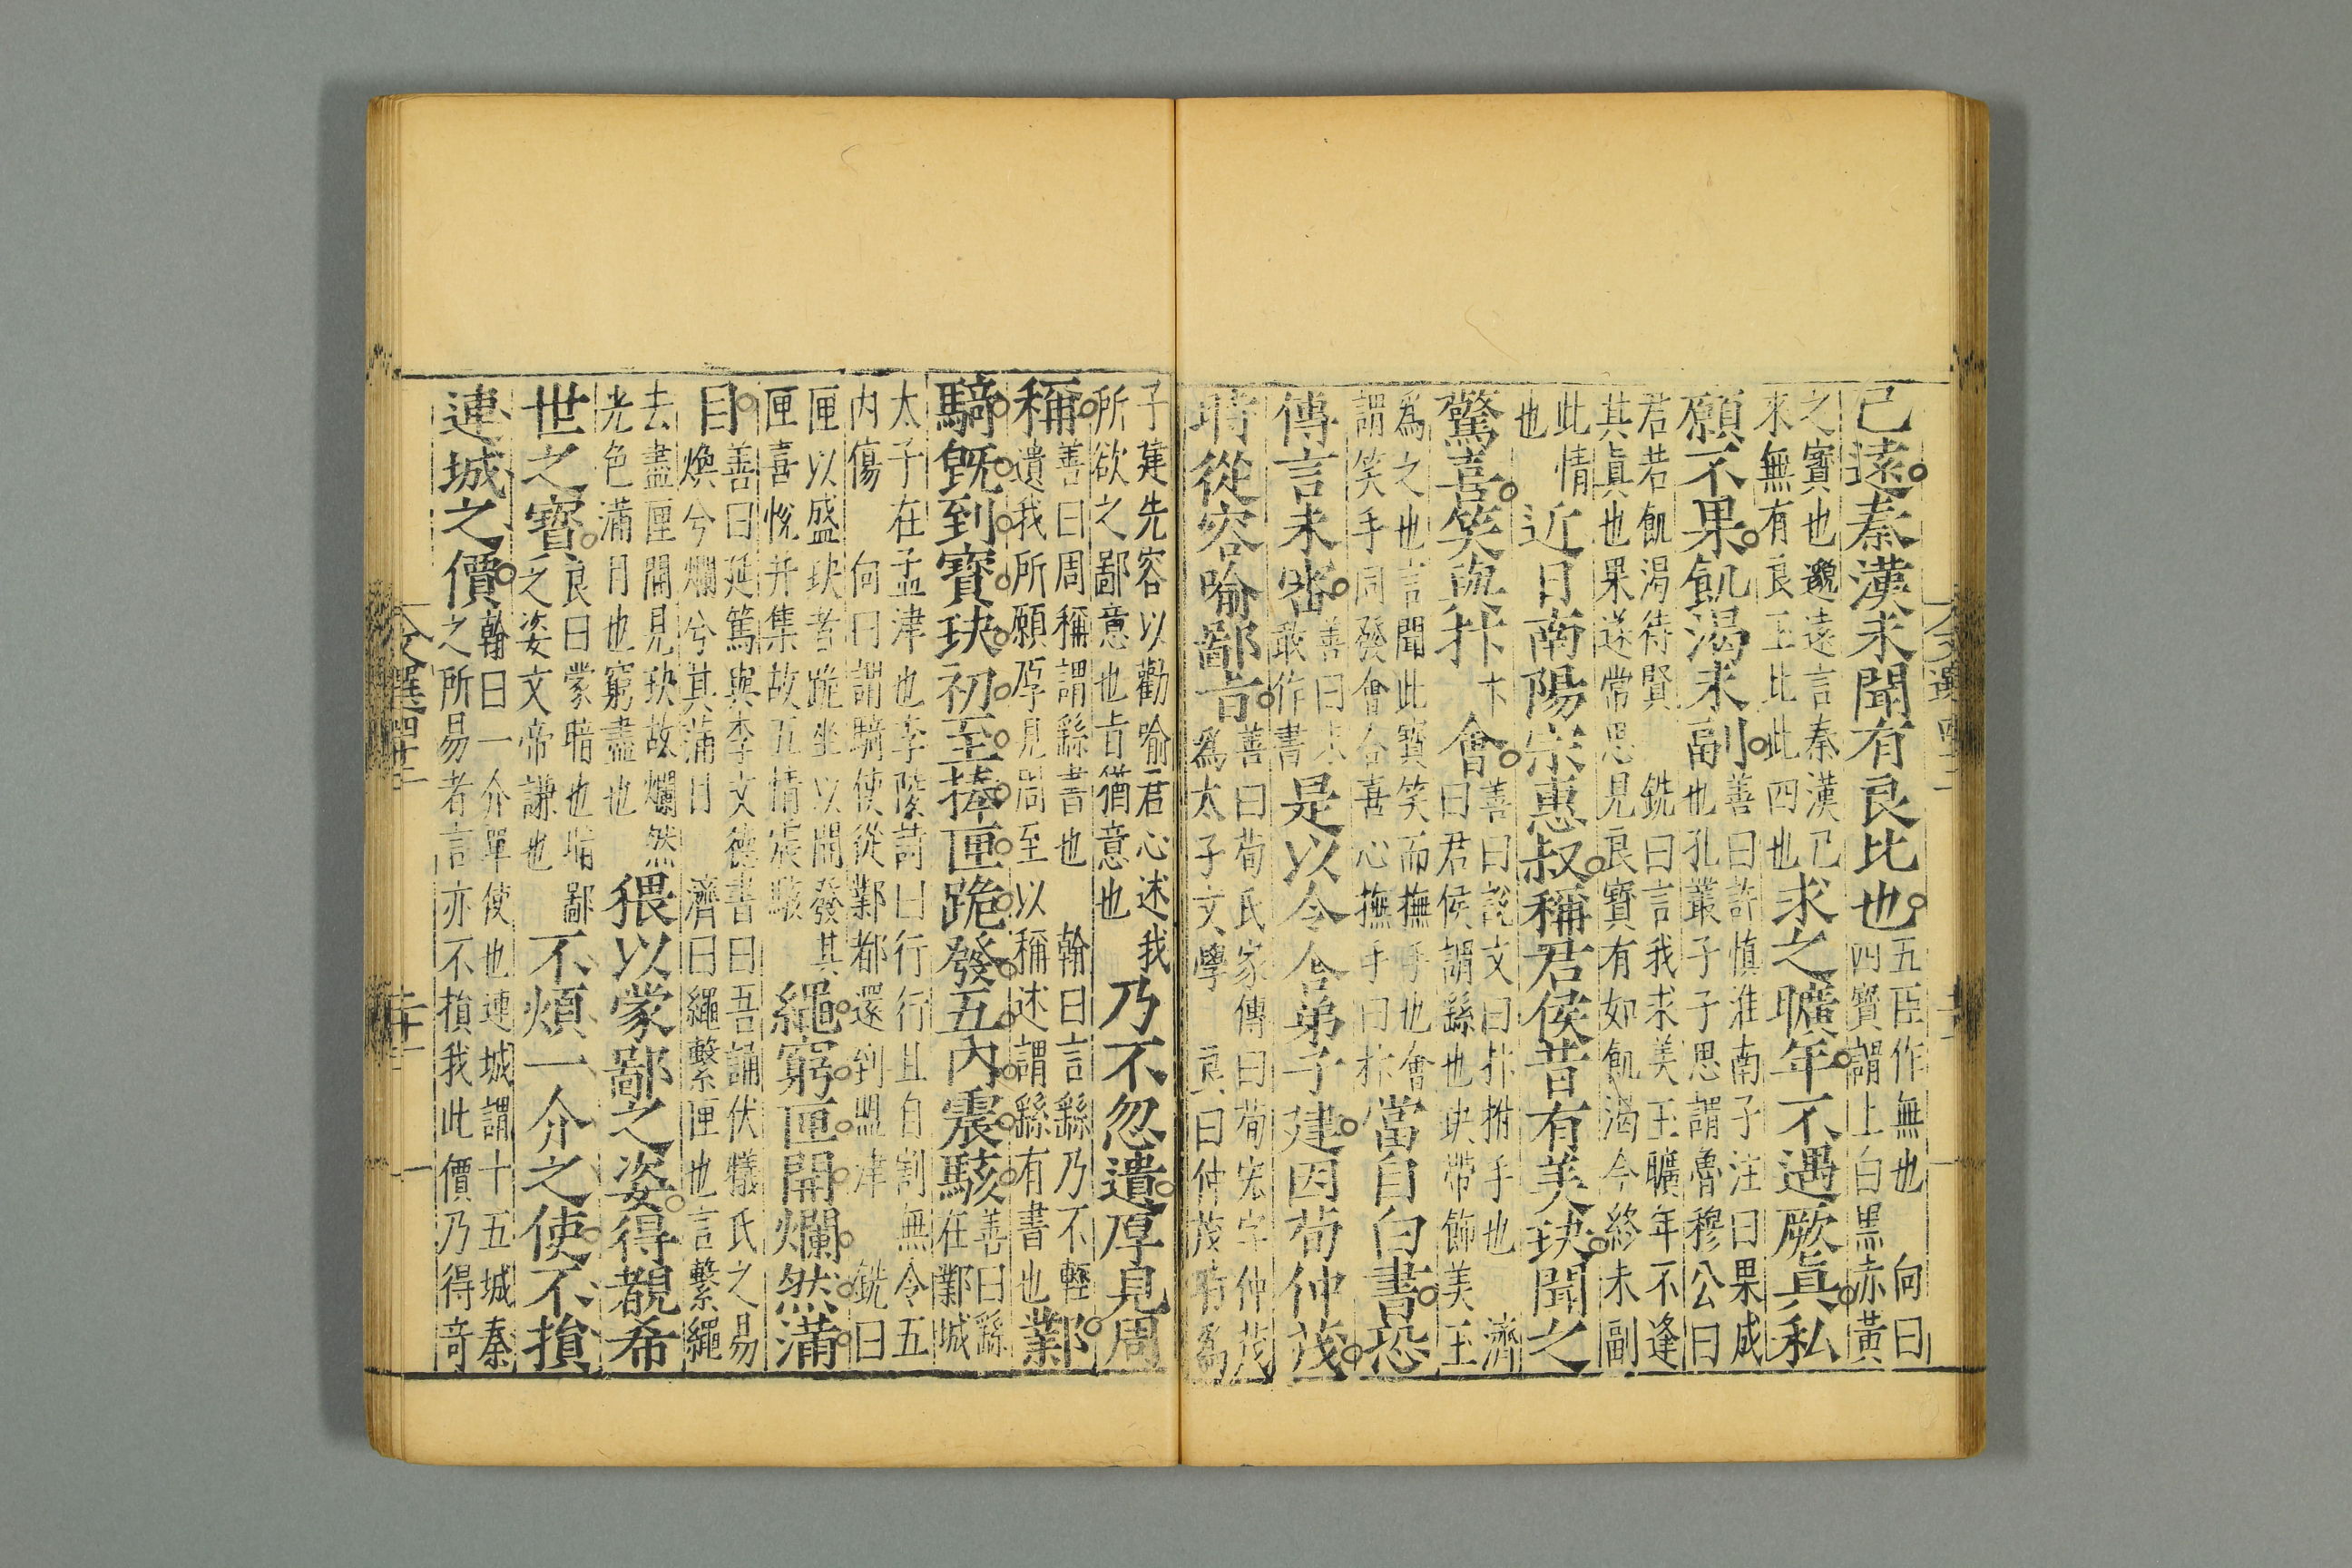 已遠秦漢未聞有良比也五臣作無也 向曰四寳謂上白黑赤黃
之寳也邈遠言秦漢已來無有良玉比此四也求之曠年不遇厥眞私
願不果飢渴未副善曰許慎淮南子注曰果成也孔叢子子思謂魯穆公曰
君若飢渴待賢 銑曰言我求美玉曠年不逢其眞也果遂常思見良寳有如飢渴今終未副
此情也近日南陽宗惠叔稱君侯昔有美玦聞之
驚喜笑與抃卞會善曰說文曰抃拊手也 濟曰君侯謂繇也玦帶飾美玉
爲之也言聞此寳笑而撫乎也會謂笑手同發會合喜心撫手曰抃當自白書恐
傳言未密善曰未敢作書是以令舍弟子建因荀仲茂
時從容喻鄙旨善曰荀氏家傳曰荀宏字仲茂爲太子文學 良曰仲茂時爲
子建先容以勸喻君心述我所欲之鄙意也旨猶意也乃不忽遺厚見周
稱善曰周稱謂繇書也 翰曰言繇乃不輕遺我所願厚見周至以稱述謂繇有書也鄴
騎旣到寳玦初至捧匣跪發五內震駭善曰繇在鄴城
太子在孟津也李陵詩曰行行且自割無令五內傷 向曰謂騎使從鄴都還到盟津 銑曰
匣以盛玦者跪坐以開發其匣喜悅并集故五情震駭繩窮匣開爛然滿
目善曰延篤與李文德書曰吾誦伏犧氏之易煥兮爛兮其滿目 濟曰繩繫匣也言繫繩
去盡匣開見玦故爛然光色滿目也窮盡也猥以蒙鄙之姿得覩希
世之寳良曰蒙暗也喻鄙之姿文帝謙也不煩一介之使不損
連城之價翰曰一介單使也連城謂十五城秦之所易者言亦不損我此價乃得奇
文選四十二